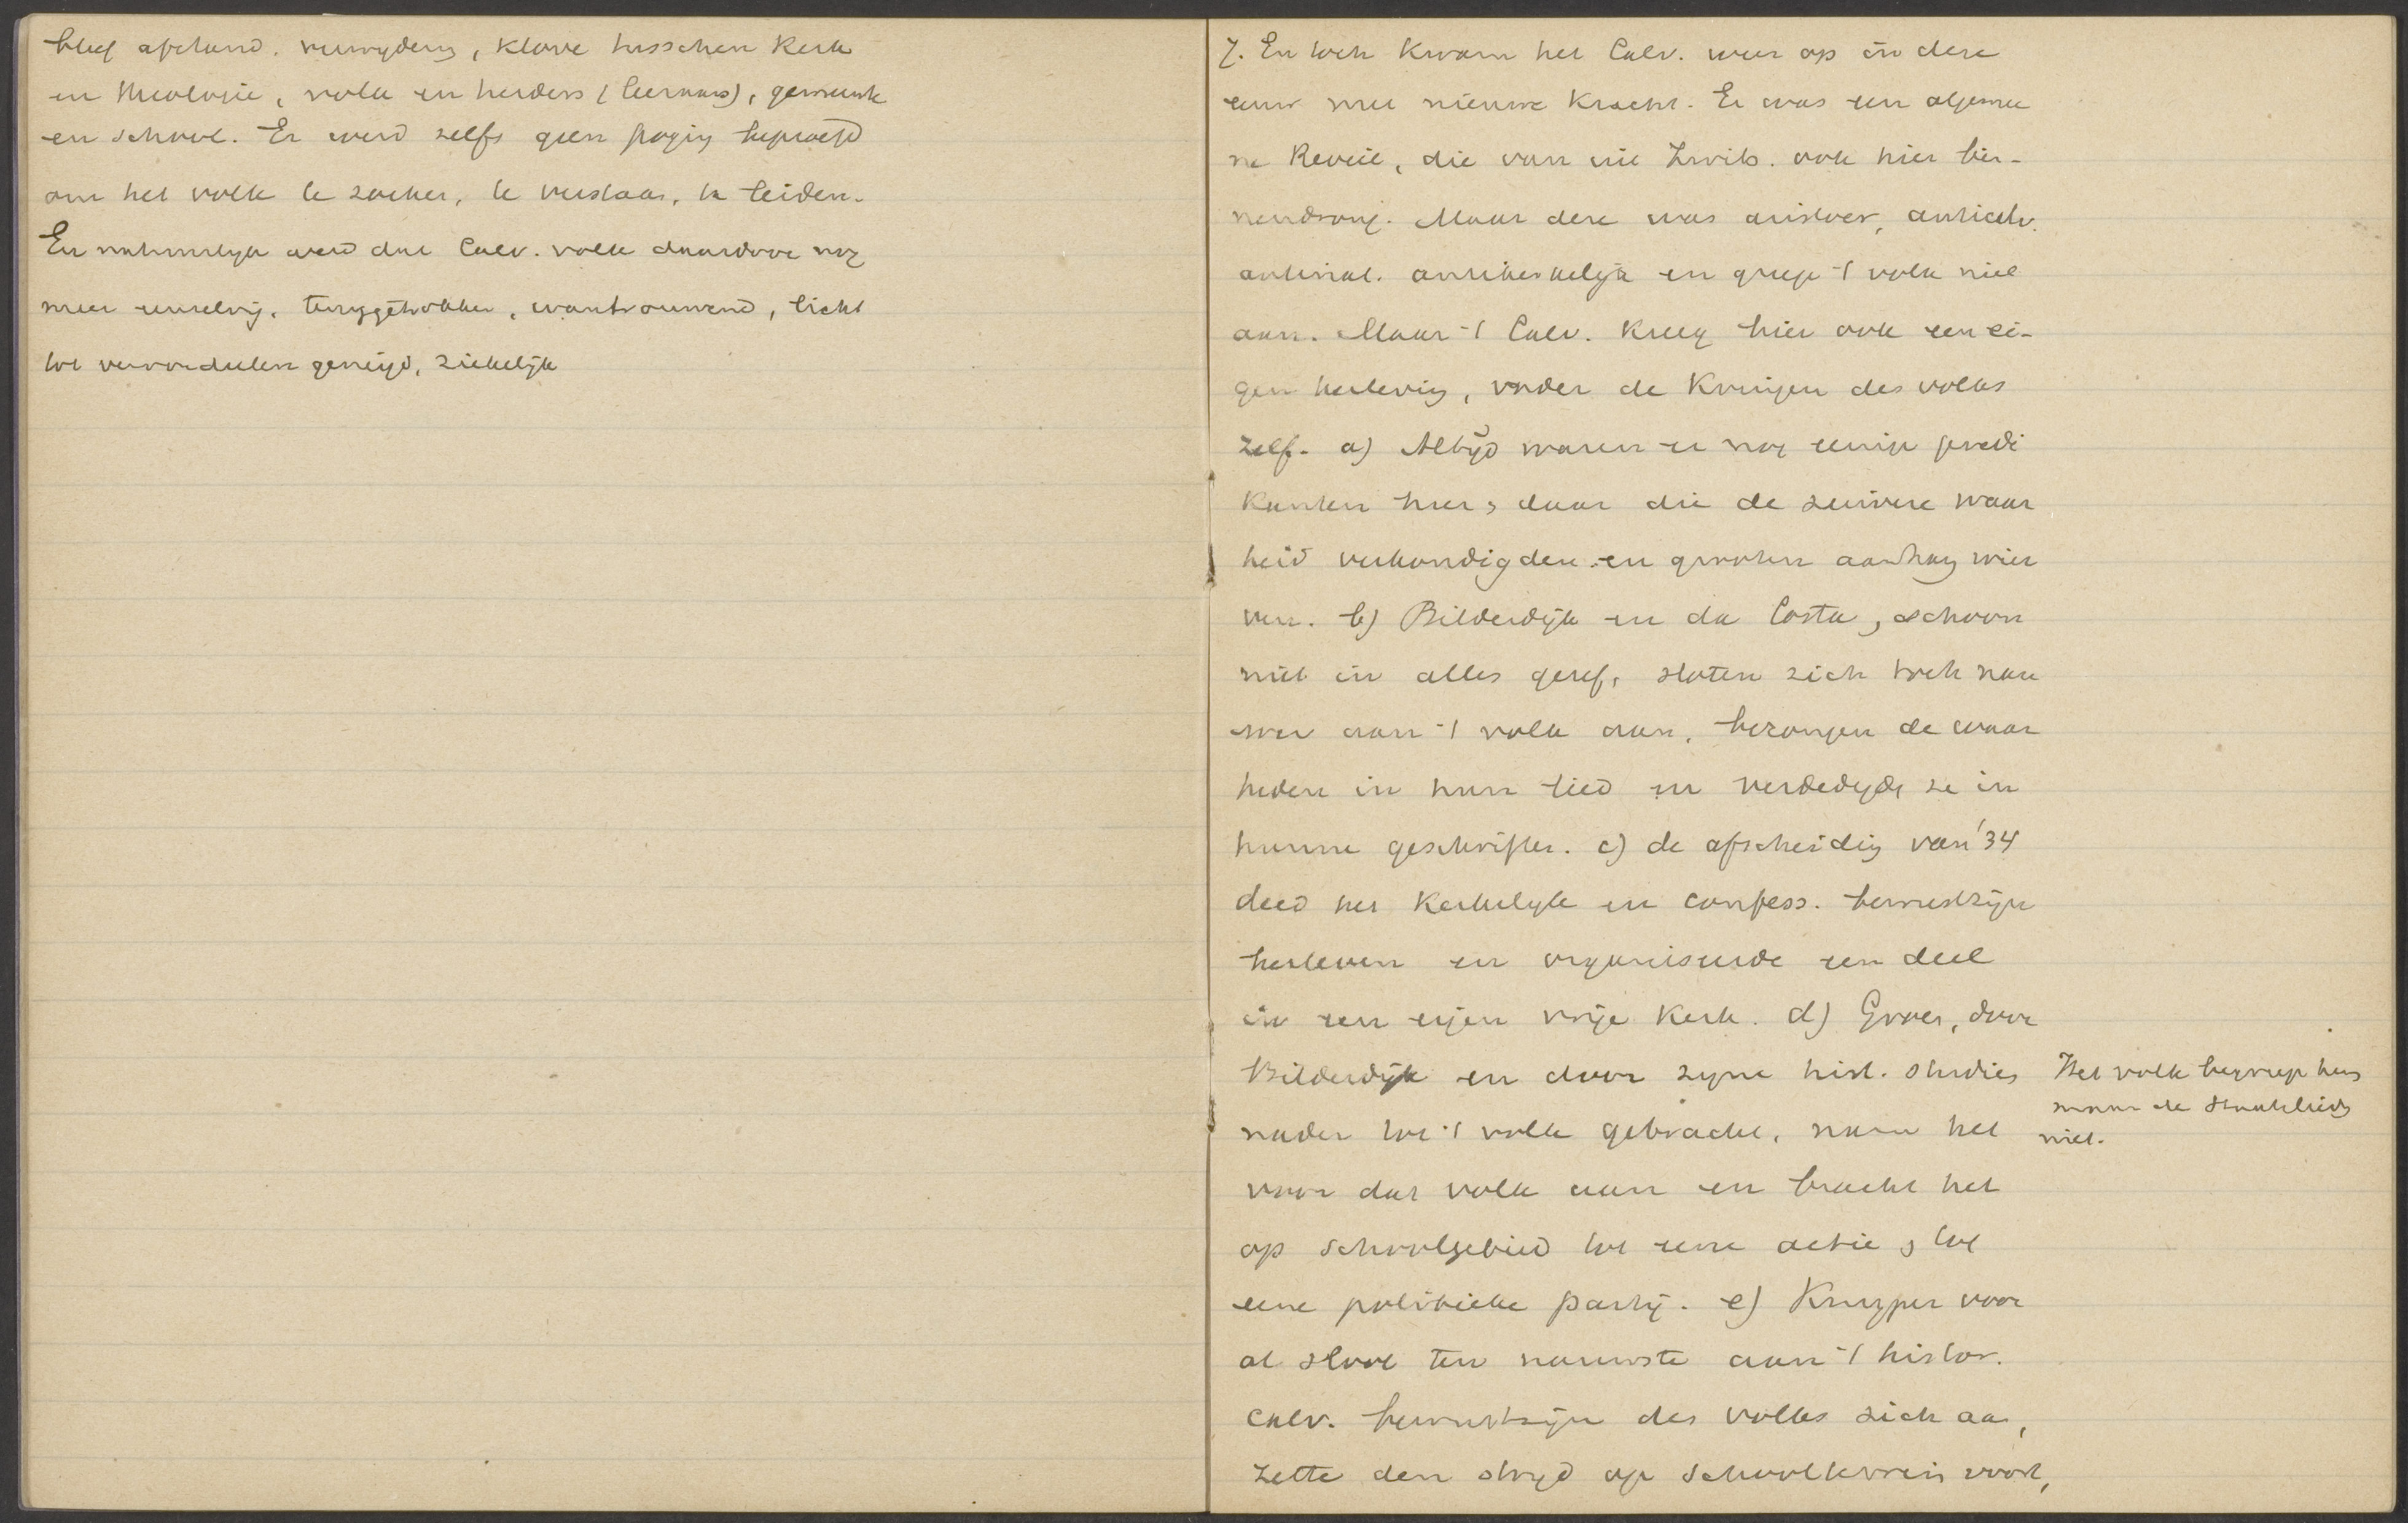 bleef afstand. verwijdering, klove tusschen Kerk
en theologie, volk en herders (leeraars), gemeente
en school. Er werd zelfs geen poging beproefd
om het volk te zoeken, te verstaan, te leiden.
En natuurlijk werd dat Calv. volk daardoor nog
meer eenzelvig, teruggetrokken, wantrouwend, licht
tot veroordeelen geneigd, ziekelijk
7. En toch kwam het Calv. weer op in deze
eeuw met nieuwe kracht. Er was een algemee
ne Reveil, die van uit Zwits. ook hier bin-
nendrong. Maar deze was aristocr, anticalv.
antinat. antikerkelijk en greep 't volk niet
aan. Maar 't Calv. kreeg hier ook een ei-
gen herleving, onder de kringen des volks
zelf. a) Altijd waren er nog eenige predi
kanten hier & daar die de zuivere waar
heid verkondigden en grooten aanhang wier
ven. b) Bilderdijk en da Costa, schoon
niet in alles geref, sloten zich toch nau
wer aan 't volk aan, bezongen de waar
heden in hun lied en verdedigde ze in
hunne geschriften. c) de afscheiding van '34
deed het kerkelijk en confess. bewustzijn
herleven en organiseerde een deel
in een eigen vrije Kerk. d) Groen, door
Bilderdijk en door zijne hist. studies
nader tot 't volk gebracht, nam het
voor dat volk aan en bracht het
op schoolgebied tot eene actie & tot
eene politieke partij. e) Kuyper voor
al sloot ten nauwste aan 't histor.
Calv. bewustzijn des volks zich aan,
zette den strijd op schoolterrein voort,
Het volk begreep hem
maar de Staatslieden
niet.